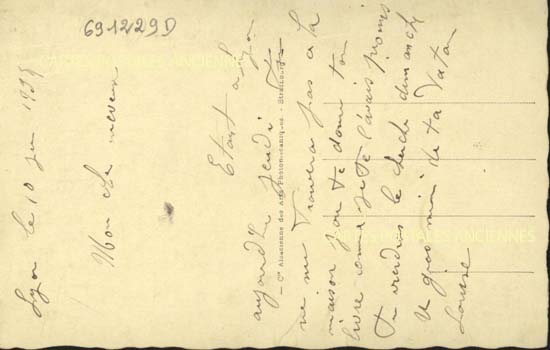 69-12/29D
Lyon le 10 juin 1935
Mon cher neveux
Etant a Lyon
aujourd'hui jeudi tu
ne me trouvera pas a la
maison pour te donné ton
livre comme je te l'avais promis
Tu viendras le cherché dimanche
Un gros mimi de ta Tata
Louise
— Cie Alsacienne des Arts Photomécaniques - Strasbourg —
CARTES POSTALES ANCIENNES